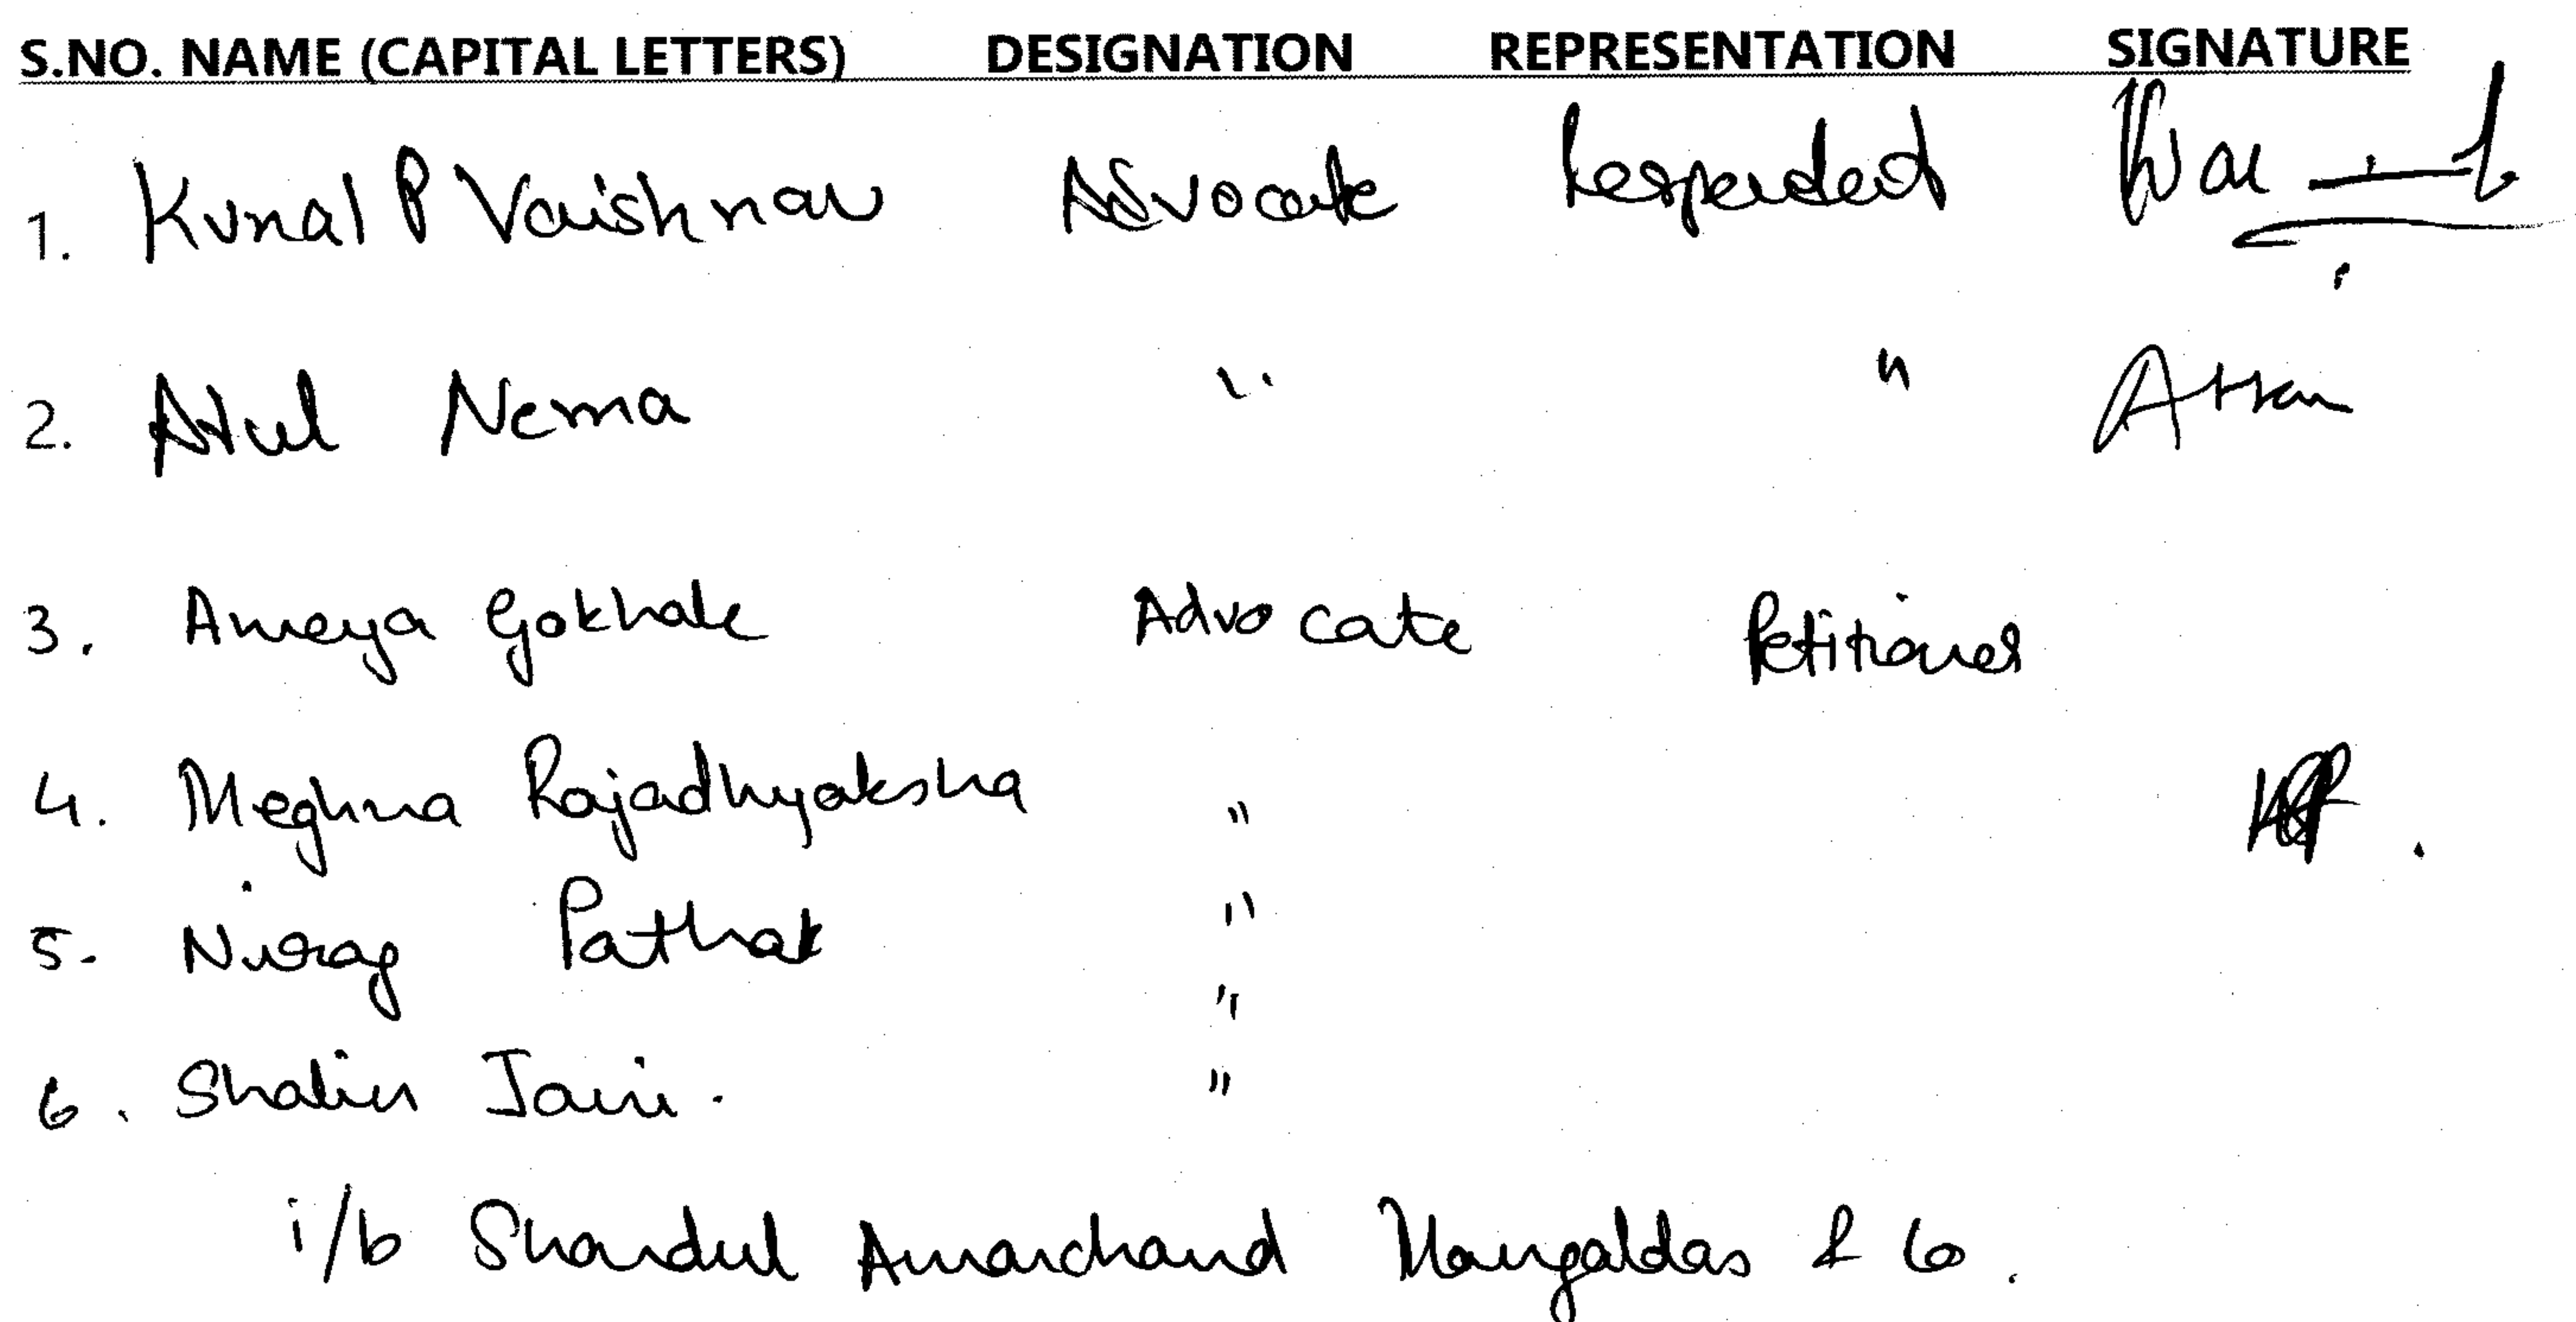 S.NO. NAME (CAPITAL LETTERS) DESIGNATION REPRESENTATION SIGNATURE
1. Kunal P Vaishnav Advocate Respondent
2. Atul Nema " "
3. Ameya Gokhale Advocate Petitioner
4. Meghna Rajadhyaksha "
5. Nirag Pathak "
"
6. Shalin Jain. "
i/b Shardul Amarchand Mangaldas & Co.